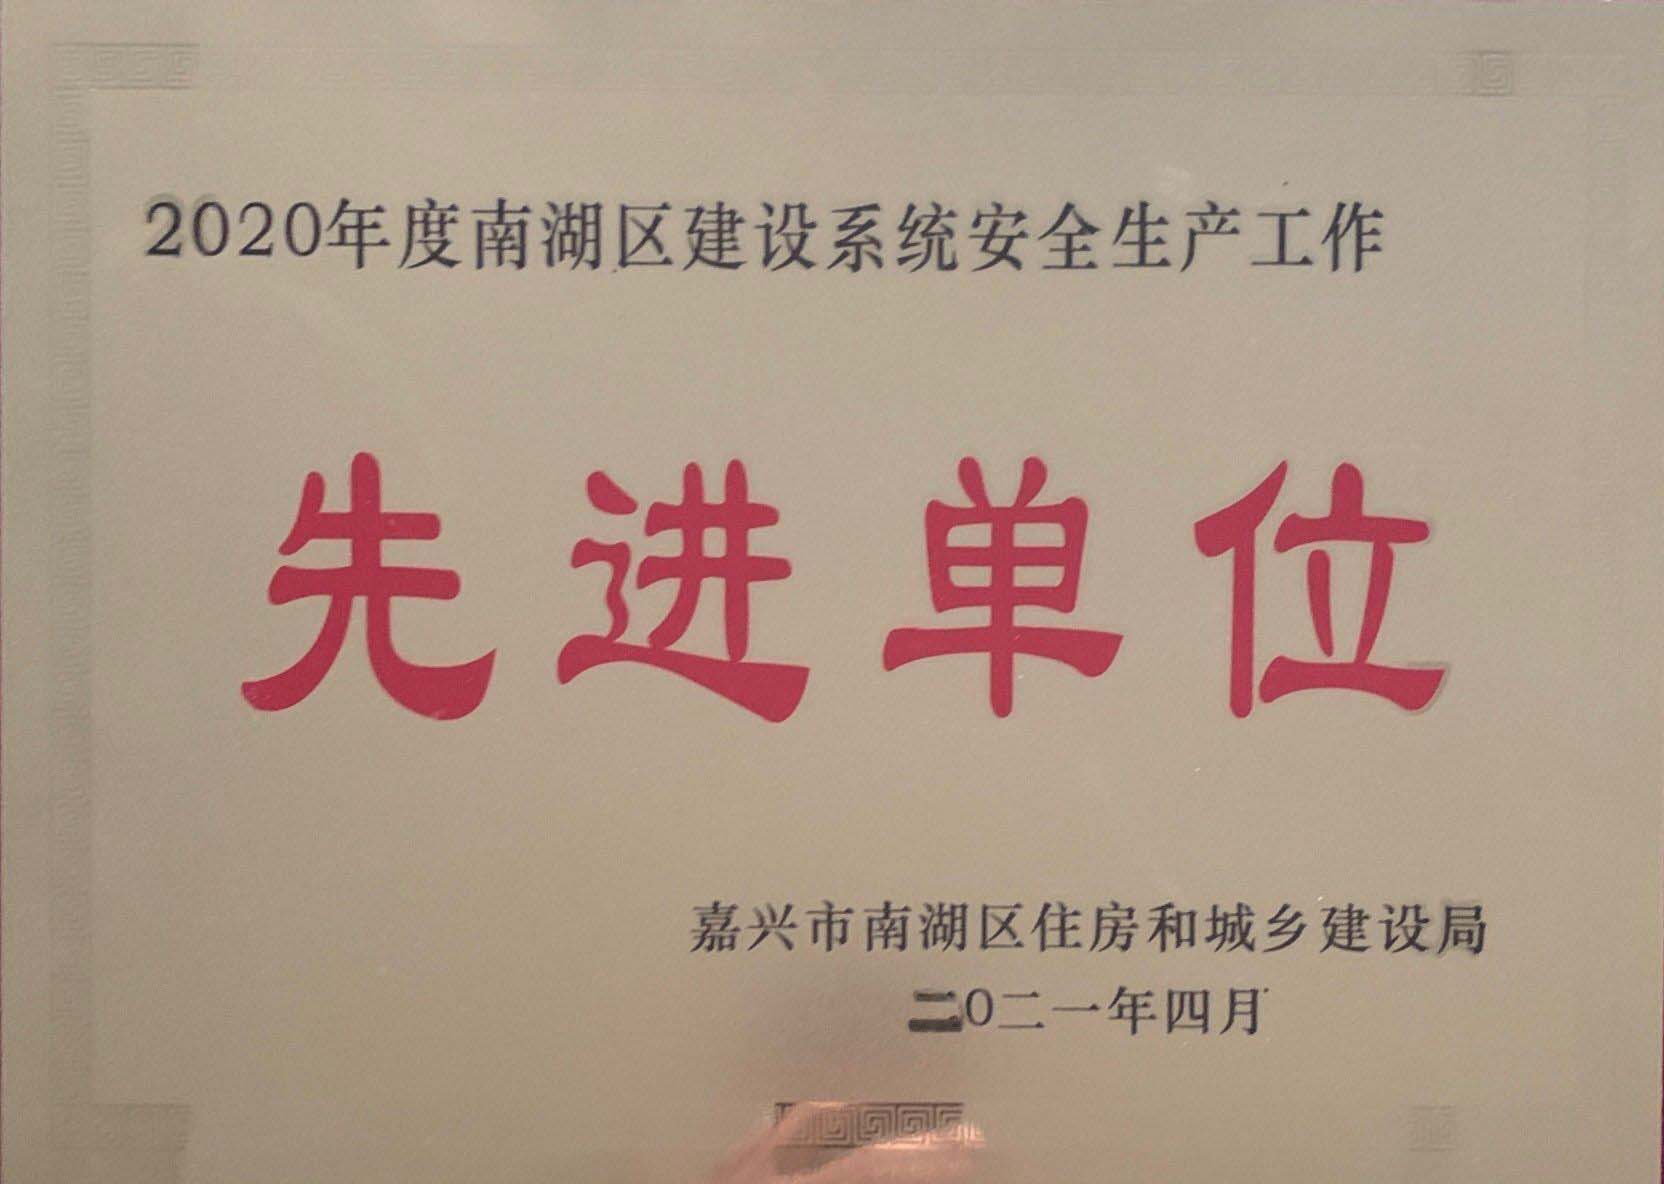 2020年度南湖区建设系统安全生产工作
先进单位
嘉兴市南湖区住房和城乡建设局
二0二一年四月